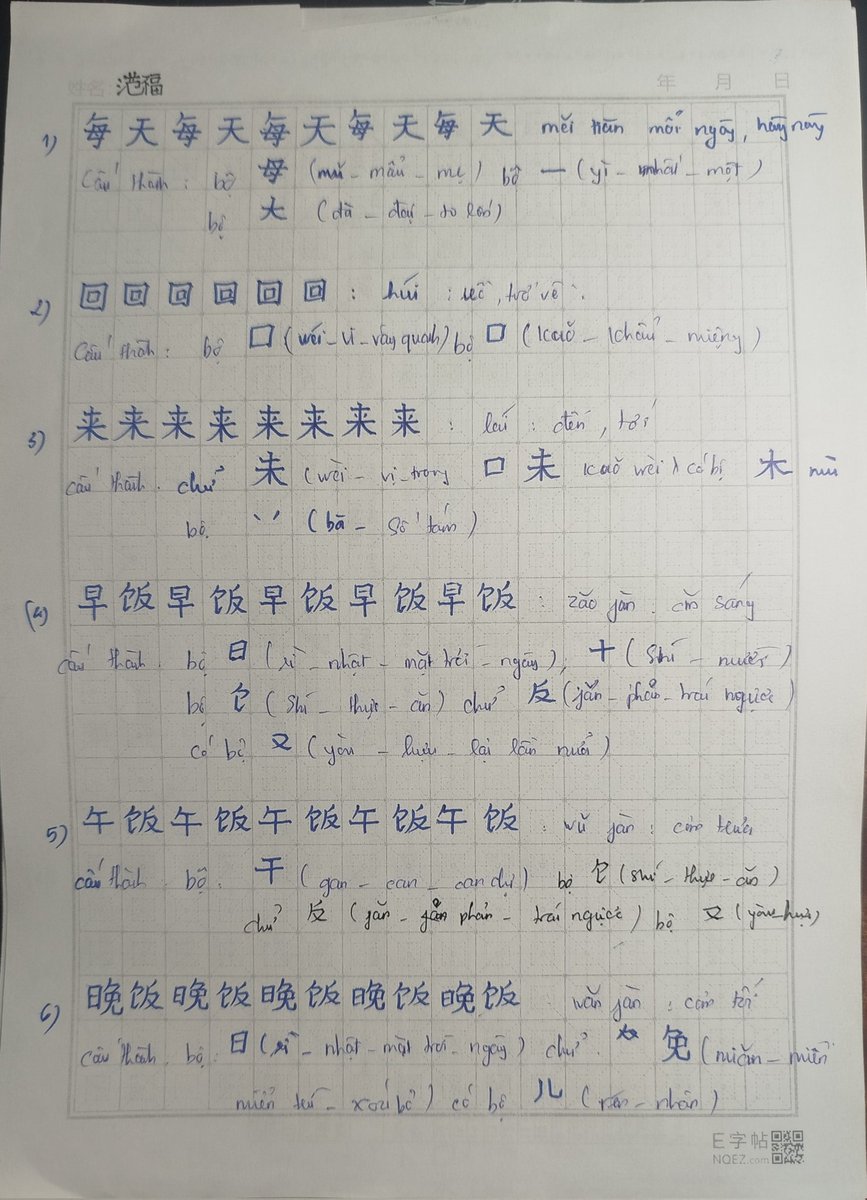 姓名: 范福 年 月 日
1) 每天每天每天每天每天 měi tiān mỗi ngày, hàng ngày
Cấu thành: bộ 母 (mǔ – mẫu – mẹ) bộ 一 (yì – nhất – một)
bộ 大 (dà – đại – to lớn)
2) 回回回回回回 : húi : về, trở về.
Cấu thành: bộ 囗 (wéi – vi – vây quanh) bộ 口 (kǒu – khẩu – miệng)
3) 来来来来来来来来 : lái : đến, tới
cấu thành. chữ 未 (wèi – vị – trong 口未 kǒu wèi) có bộ 木 mù
bộ 丷 (bā – số tám)
4) 早饭早饭早饭早饭早饭 : zǎo fàn : cơm sáng
cấu thành: bộ 日 (rì – nhật – mặt trời – ngày), 十 (shí – mười)
bộ 饣 (shí – thực – ăn) chữ 反 (fǎn – phản – trái ngược)
có bộ 又 (yòu – hựu – lại lần nữa)
5) 午饭午饭午饭午饭午饭 : wǔ fàn : cơm trưa
cấu thành. bộ. 干 (gan – can – can dự) bộ 饣 (shí – thực – ăn)
chữ 反 (fǎn – phản – trái ngược) bộ 又 (yòu – hựu)
6) 晚饭晚饭晚饭晚饭晚饭 : wǎn fàn : cơm tối
cấu thành. bộ: 日 (rì – nhật – mặt trời – ngày) chữ 免 (miǎn – miễn
miễn trừ – xoá bỏ) có bộ 儿 (rén – nhân)
E字帖
NQEZ.com